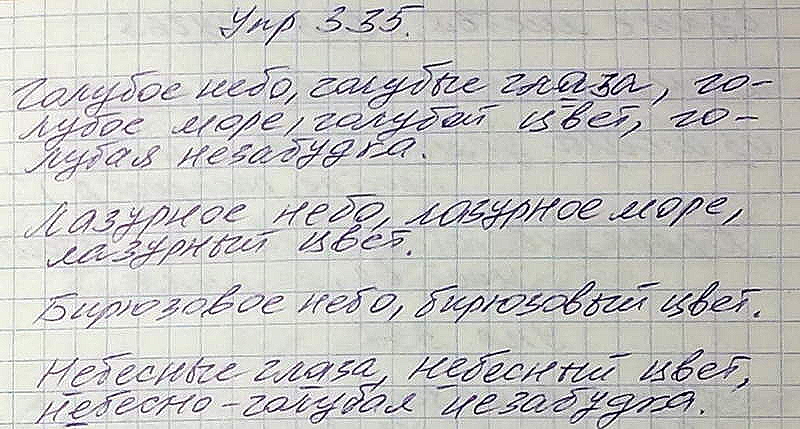 Упр 335.
Голубое небо, голубые глаза, го-
лубое море, голубой цвет, го-
лубая незабудка.
Лазурное небо, лазурное море,
лазурный цвет.
Бирюзовое небо, бирюзовый цвет.
Небесные глаза, небесный цвет,
небесно-голубая незабудка.